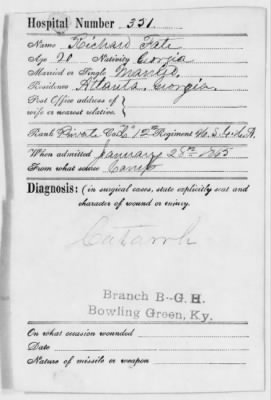 Hospital Number 331.
Name Richard Tate
Age 20 Nativity Georgia
Married or Single
Residence Atlanta Georgia
Post Office address of
wife or nearest relative.
Rank Private Co. "C" 12th Regiment U. S. C. H. A.
When admitted January 28th 1865
From what source Camp
Diagnosis: (in surgical cases, state explicitly seat and
character of wound or injury.
Catarrh
Branch B-G. H.
Bowling Green, Ky.
On what occasion wounded
Date
Nature of missile or weapon